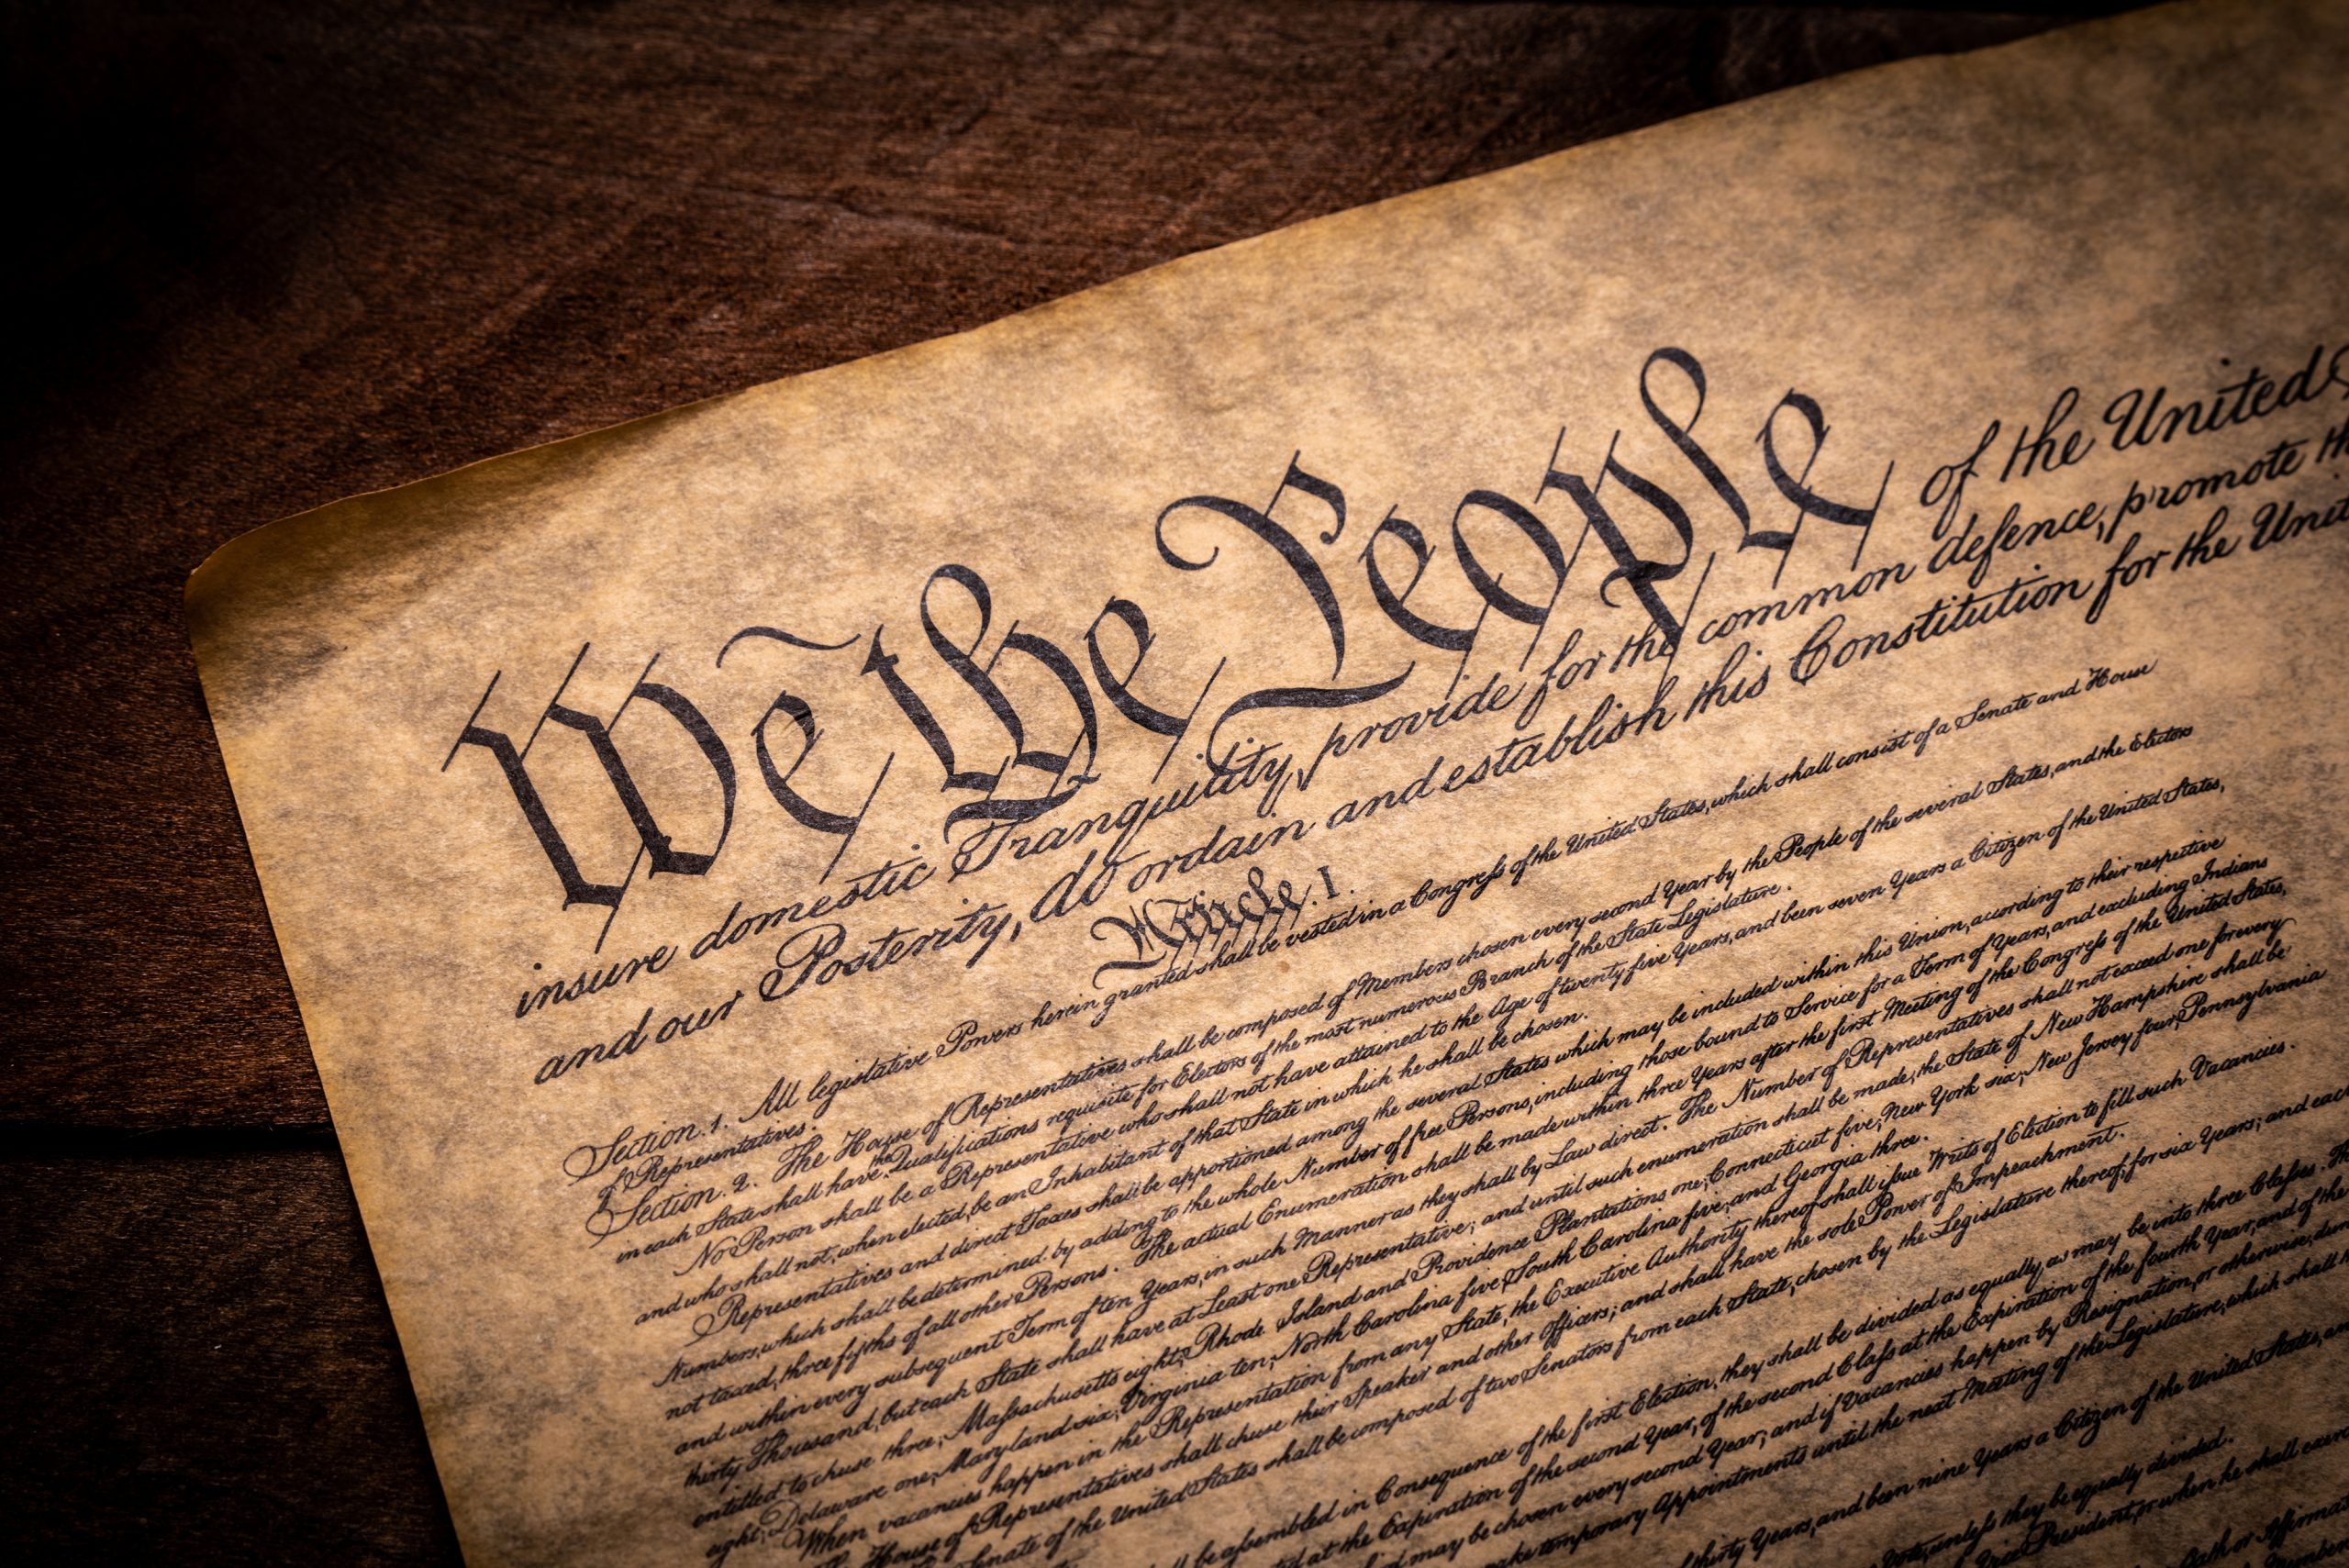 We the People of the United
insure domestic Tranquility, provide for the common defence, promote
and our Posterity, do ordain and establish this Constitution for the
Article. I.
Section. 1. All legislative Powers herein granted shall be vested in a Congress of the United States, which shall consist of a Senate and House
of Representatives.
Section. 2. The House of Representatives shall be composed of Members chosen every second Year by the People of the several States, and the Electors
in each State shall have the Qualifications requisite for Electors of the most numerous Branch of the State Legislature.
No Person shall be a Representative who shall not have attained to the Age of twenty five Years, and been seven Years a Citizen of the United States,
and who shall not, when elected, be an Inhabitant of that State in which he shall be chosen.
Representatives and direct Taxes shall be apportioned among the several States which may be included within this Union, according to their respective
Numbers, which shall be determined by adding to the whole Number of free Persons, including those bound to Service for a Term of Years, and excluding Indians
not taxed, three fifths of all other Persons. The actual Enumeration shall be made within three Years after the first Meeting of the Congress of the United States,
and within every subsequent Term of ten Years, in such Manner as they shall by Law direct. The Number of Representatives shall not exceed one for every
thirty Thousand, but each State shall have at Least one Representative; and until such enumeration shall be made, the State of New Hampshire shall be
entitled to chuse three, Massachusetts eight, Rhode Island and Providence Plantations one, Connecticut five, New York six, New Jersey four, Pennsylvania
eight, Delaware one, Maryland six, Virginia ten, North Carolina five, South Carolina five, and Georgia three.
When vacancies happen in the Representation from any State, the Executive Authority thereof shall issue Writs of Election to fill such Vacancies.
House of Representatives shall chuse their Speaker and other Officers; and shall have the sole Power of Impeachment.
Senate of the United States shall be composed of two Senators from each State, chosen by the Legislature thereof, for six Years; and each
be assembled in Consequence of the first Election, they shall be divided as equally as may be into three Classes.
at the Expiration of the second Year, of the second Class at the Expiration of the fourth Year, and of the
may be chosen every second Year; and if Vacancies happen by Resignation, or otherwise,
make temporary Appointments until the next Meeting of the Legislature, which shall
thirty Years, and been nine Years a Citizen of the United States,
Vote, unless they be equally divided.
President, or when he shall
Oath or